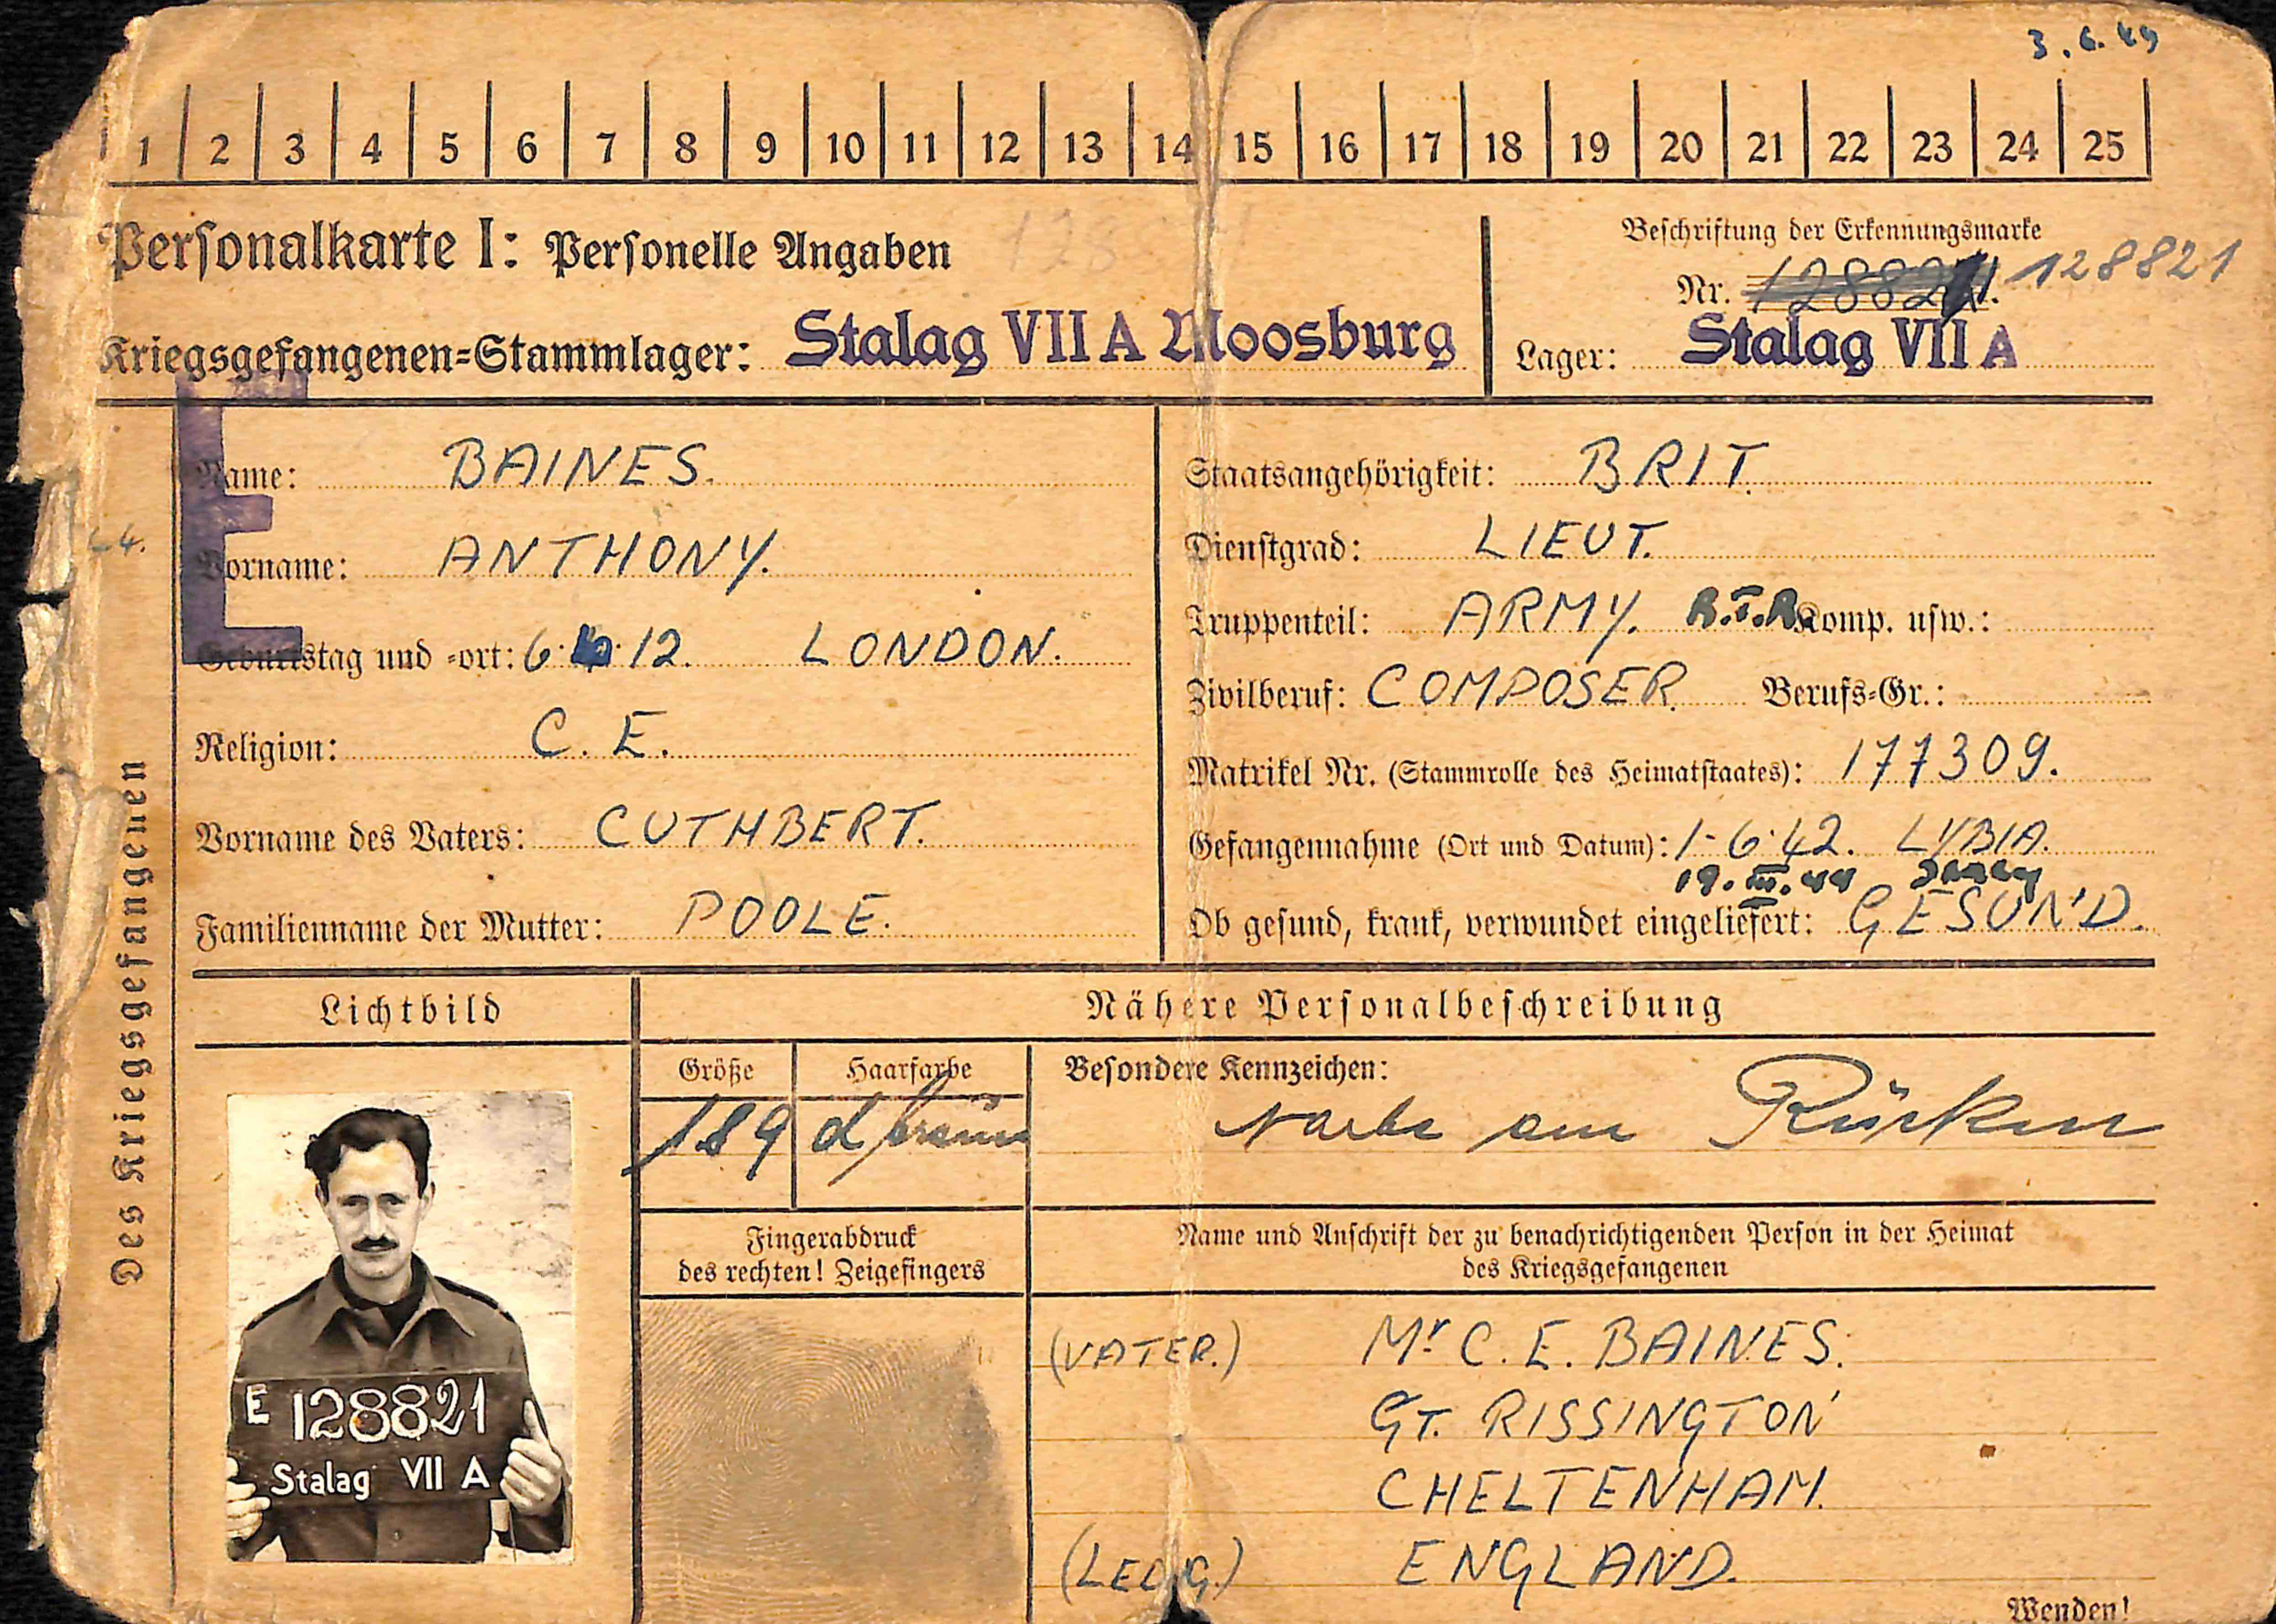 3.6.44
1 2 3 4 5 6 7 8 9 10 11 12 13 14 15 16 17 18 19 20 21 22 23 24 25
Personalkarte I: Personelle Angaben
Kriegsgefangenen=Stammlager: Stalag VII A Moosburg
Beschriftung der Erkennungsmarke
Nr. 128821
Lager: Stalag VII A
E
Des Kriegsgefangenen
Name: BAINES.
Vorname: ANTHONY.
Geburtstag und =ort: 6. 12. LONDON.
Religion: C. E.
Vorname des Vaters: CUTHBERT.
Familienname der Mutter: POOLE.
Staatsangehörigkeit: BRIT.
Dienstgrad: LIEUT.
Truppenteil: ARMY. R.T.R. Komp. usw.:
Zivilberuf: COMPOSER. Berufs=Gr.:
Matrikel Nr. (Stammrolle des Heimatstaates): 177309.
Gefangennahme (Ort und Datum): 1-6.42. LYBIA.
19. III. 44
Ob gesund, krank, verwundet eingeliefert: GESUND.
Lichtbild
Nähere Personalbeschreibung
Größe
189
Haarfarbe
d braun
Besondere Kennzeichen:
Narbe am Rücken
Fingerabdruck
des rechten! Zeigefingers
Name und Anschrift der zu benachrichtigenden Person in der Heimat
des Kriegsgefangenen
(VATER.) Mr C. E. BAINES.
GT. RISSINGTON
CHELTENHAM.
(LEDIG.) ENGLAND.
E 128821
Stalag VII A
Wenden!